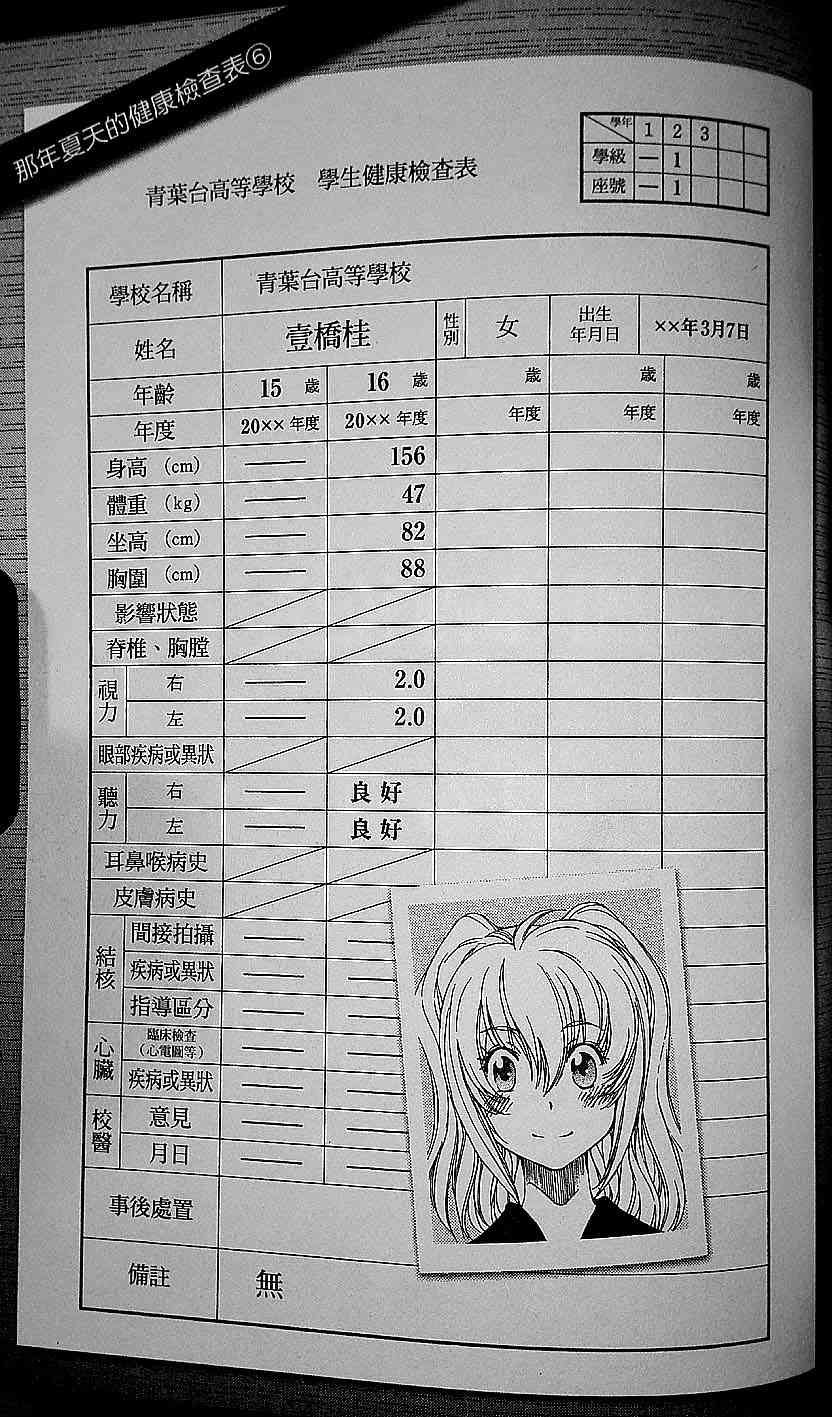 那年夏天的健康檢查表⑥
青葉台高等學校 學生健康檢查表
學年 1 2 3
學級 — 1
座號 — 1
學校名稱 青葉台高等學校
姓名 壹橋桂 性別 女 出生年月日 ××年3月7日
年齡 15 歲 16 歲 歲 歲 歲
年度 20××年度 20××年度 年度 年度 年度
身高（cm） — 156
體重（kg） — 47
坐高（cm） — 82
胸圍（cm） — 88
影響狀態
脊椎、胸膛
視力 右 — 2.0
左 — 2.0
眼部疾病或異狀
聽力 右 — 良好
左 — 良好
耳鼻喉病史
皮膚病史
結核 間接拍攝 — —
疾病或異狀 — —
指導區分 — —
心臟 臨床檢查（心電圖等） — —
疾病或異狀 — —
校醫 意見 — —
月日 — —
事後處置
備註 無